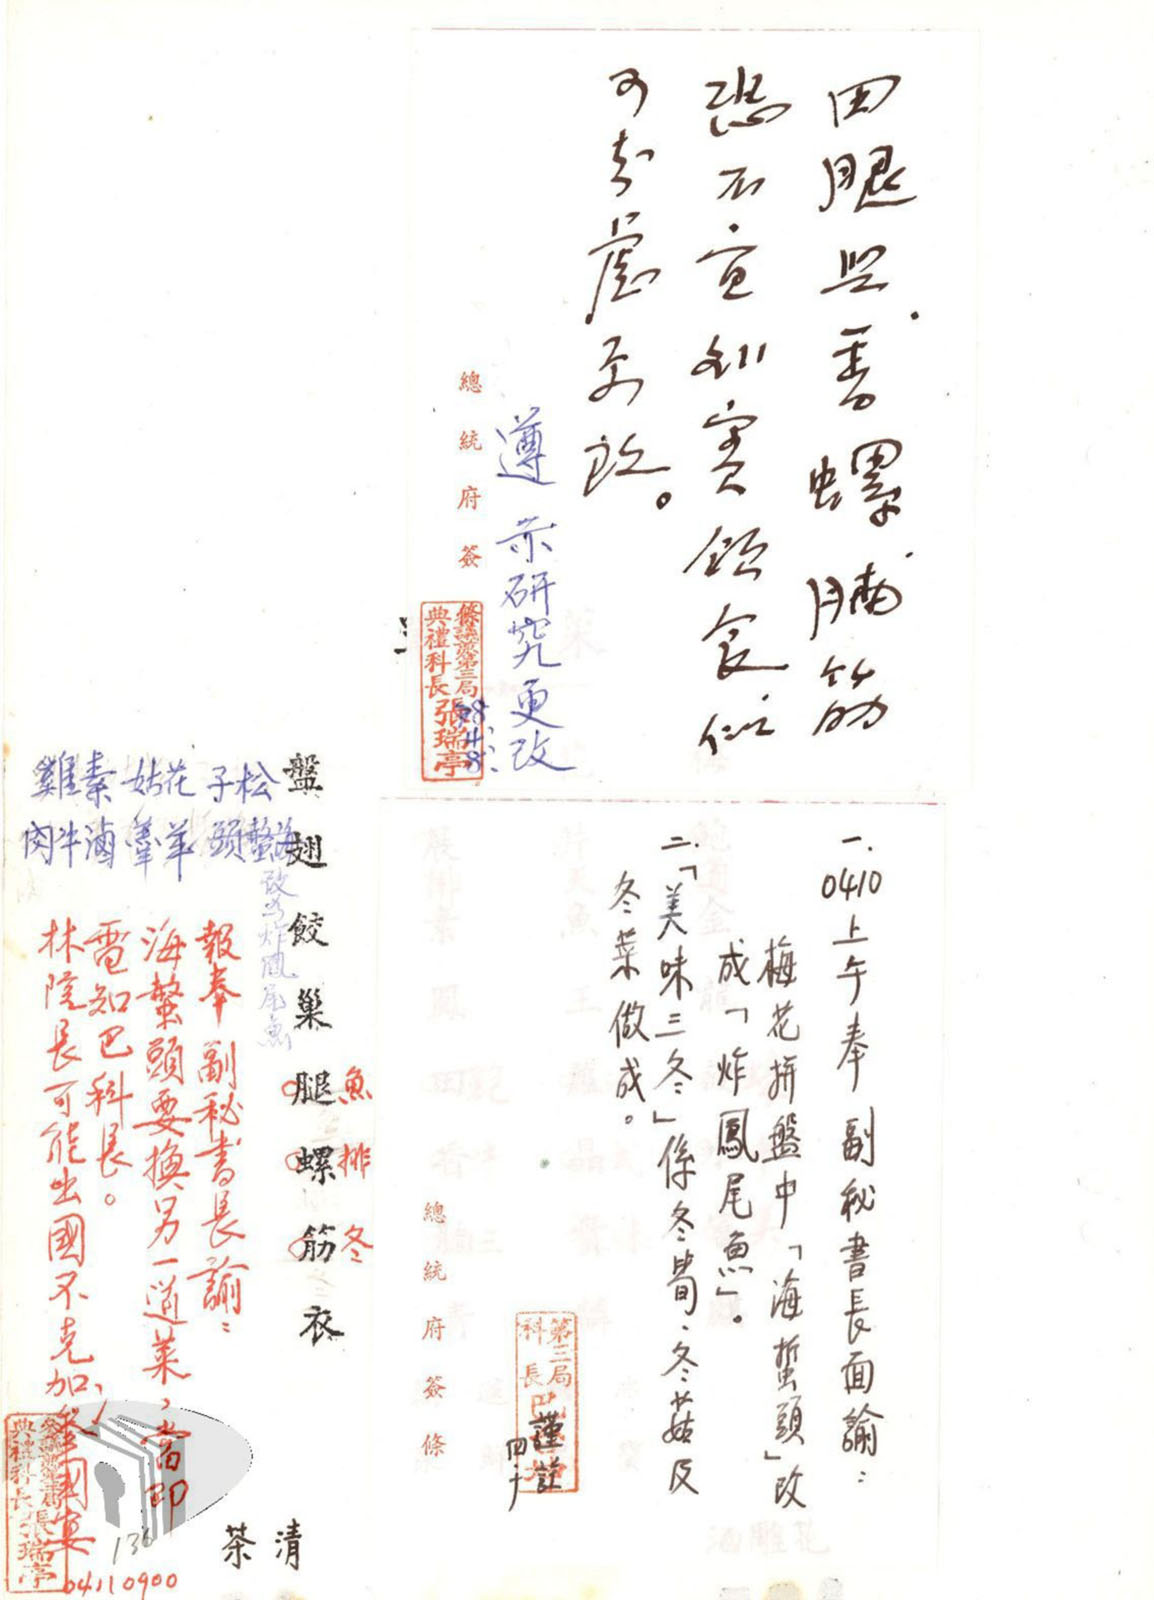 田腿與香螺腩筋
恐不宜外賓飲食似
可考慮予改。
遵示研究更改
總統府簽
典禮科長張瑞亭
一.0410上午奉副秘書長面諭：
梅花拼盤中「海蜇頭」改
成「炸鳳尾魚」。
二.「美味三冬」係冬筍、冬菇及
冬菜做成。
謹註
總統府簽條
第三局
科長
盤翅餃巢腿螺筋衣
魚排冬
松子
海蜇頭
花菇
羊羹
素滷
雞肉
牛
改為炸鳳尾魚
報奉副秘書長諭：
海蜇頭要換另一道菜，當即
電知巴科長。
林院長可能出國不克加參國宴
04110900
典禮科長張瑞亭
136
清茶